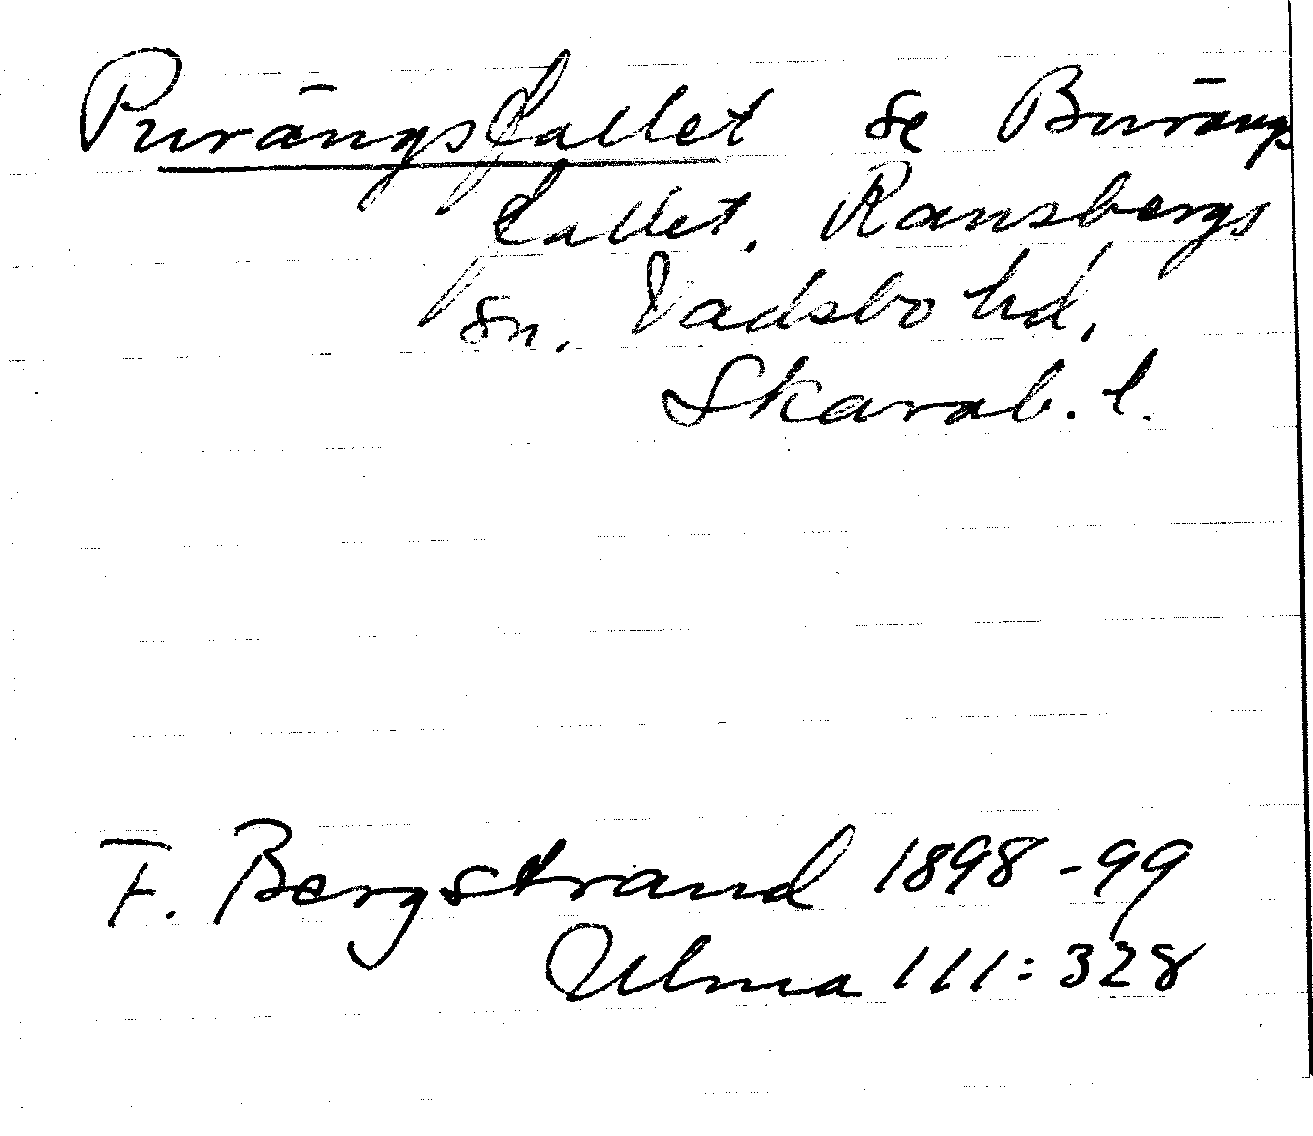 Purängsfallet se Burängs
fallet. Ransbergs
sn. Vadsbo hd,
Skarab. l.
F. Bergstrand 1898-99
Ulma 111:328